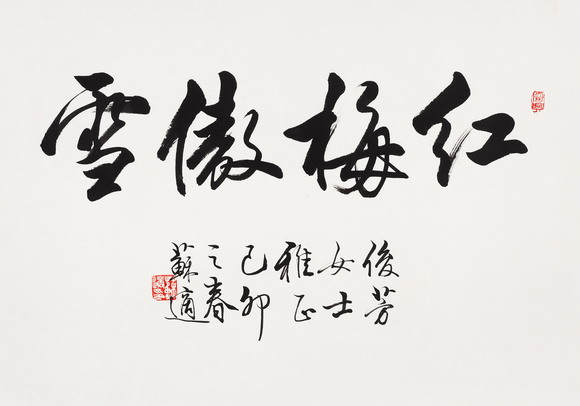 红梅傲雪
俊芳
女士
雅正
己卯
之春
蘇適